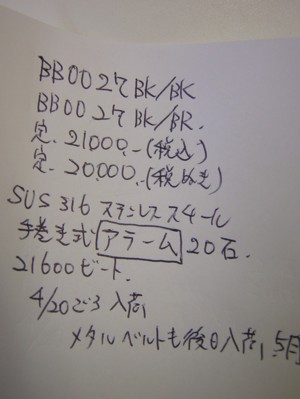 BB0027BK/BK
BB0027BK/BR.
定. 21000.-(税込)
定. 20000.-(税ぬき)
SUS316 ステンレススチール
手巻き式 アラーム 20石.
21600ビート.
4/20ごろ 入荷
メタルベルトも後日入荷, 5月